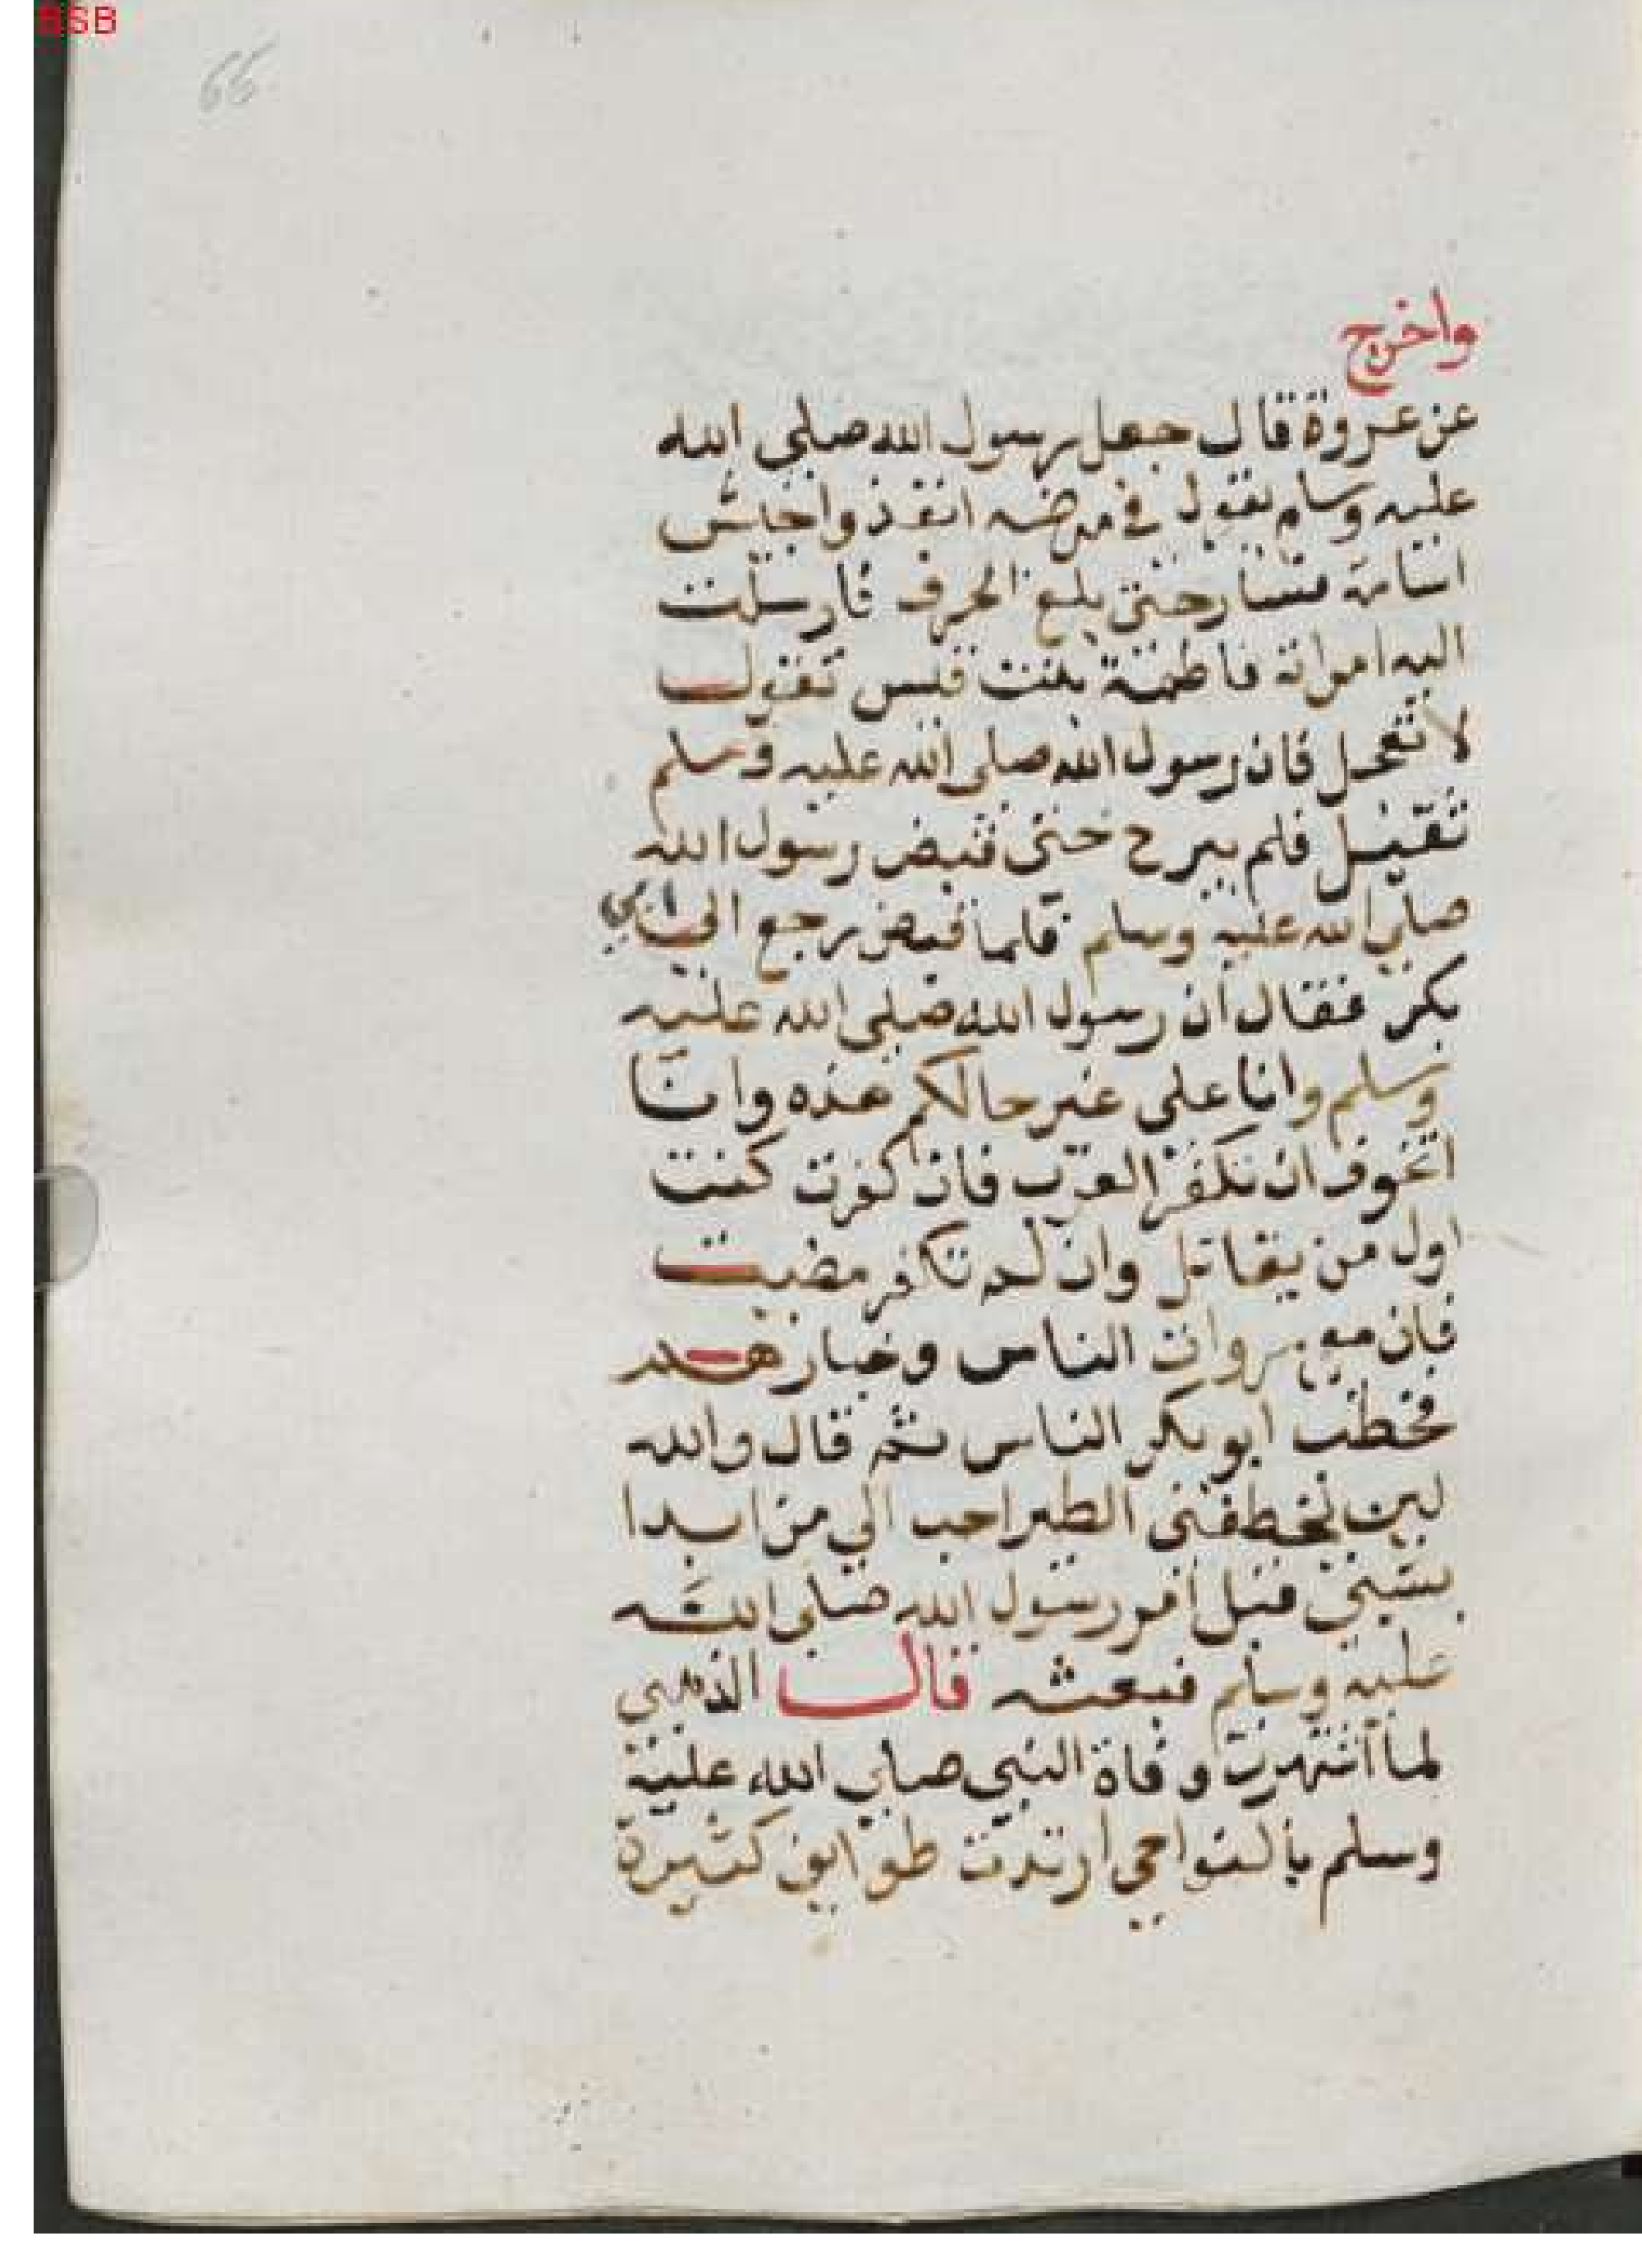 BSB
66
واخرج
عن عروة قال جعل رسول الله صلي الله
عليه وسلم يقول في مرضه انفذوا جيش
اسامة فسار حتى بلغ الجرف فارسلت
اليه امراته فاطمة بنت قيس تقول
لا تعجل فان رسول الله صلى الله عليه وسلم
ثقيل فلم يبرح حتى قبض رسول الله
صلي الله عليه وسلم فلما قبض رجع الى ابي
بكر فقال ان رسول الله صلى الله عليه
وسلم وانا على غير حالكم هذه وانا
اتخوف ان تكفر العرب فان كفرت كنت
اول من يقاتل وان لم تكفر مضيت
فان معي سروات الناس وخيارهم
فخطب ابو بكر الناس ثم قال والله
لين تخطفني الطير احب الي من ابدا
بشيئ قبل امر رسول الله صلى الله
عليه وسلم فبعثه قال الذهبي
لما اشتهرت وفاة النبي صلي الله عليه
وسلم بالنواحي ارتدت طوايف كثيرة